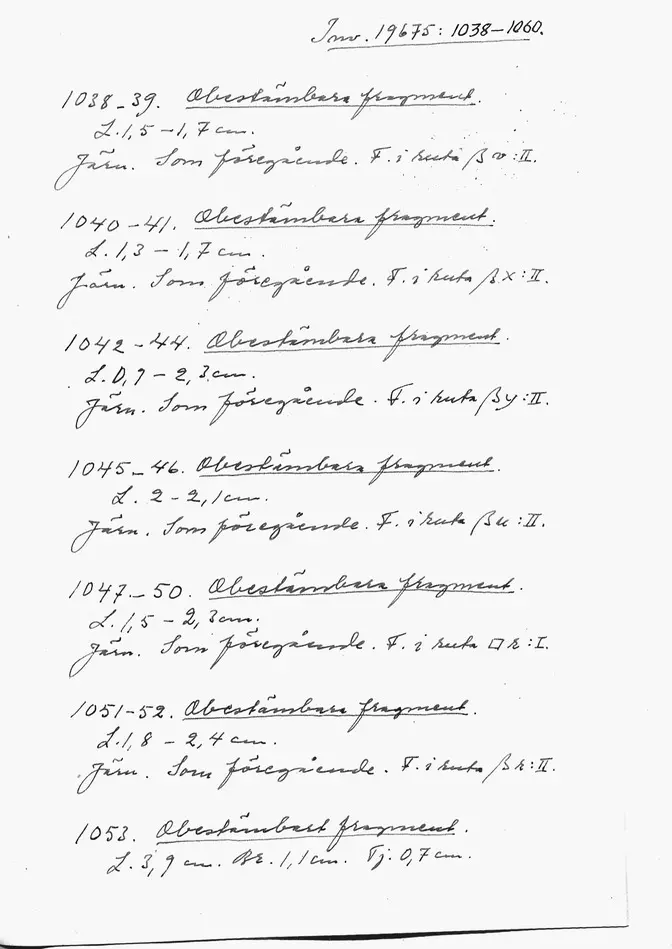 Inv. 19675: 1038–1060.
1038–39. Obestämbara fragment.
L. 1,5 – 1,7 cm.
Järn. Som föregående. F. i ruta β v:II.
1040–41. Obestämbara fragment.
L. 1,3 – 1,7 cm.
Järn. Som föregående. F. i ruta β x:II.
1042–44. Obestämbara fragment.
L. 0,9 – 2,3 cm.
Järn. Som föregående. F. i ruta β y:II.
1045–46. Obestämbara fragment.
L. 2 – 2,1 cm.
Järn. Som föregående. F. i ruta β u:II.
1047–50. Obestämbara fragment.
L. 1,5 – 2,3 cm.
Järn. Som föregående. F. i ruta
1051–52. Obestämbara fragment.
L. 1,8 – 2,4 cm.
Järn. Som föregående. F. i ruta
1053. Obestämbart fragment.
L. 3,9 cm. Br. 1,1 cm. Tj. 0,7 cm.